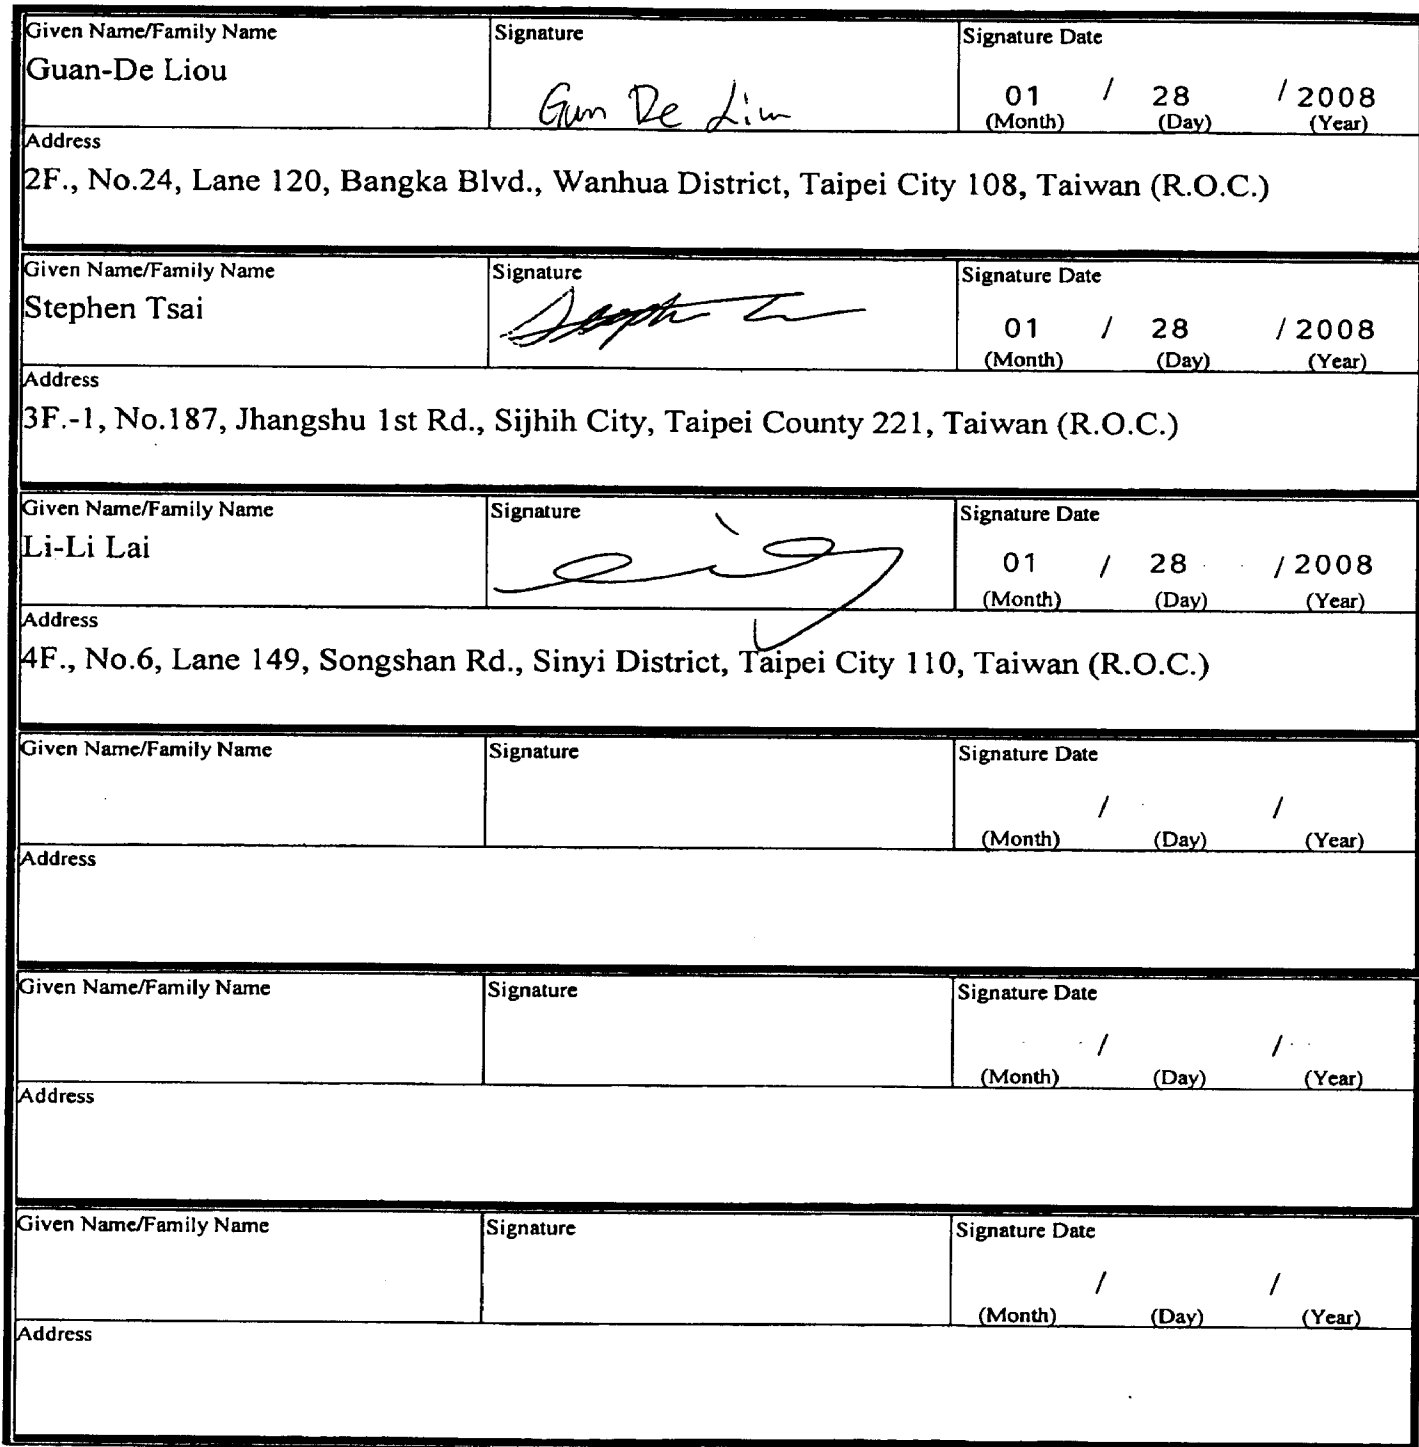 Given Name/Family Name Signature Signature Date
Guan-De Liou
01 / 28 / 2008
(Month) (Day) (Year)
Address
2F., No.24, Lane 120, Bangka Blvd., Wanhua District, Taipei City 108, Taiwan (R.O.C.)
Given Name/Family Name Signature Signature Date
Stephen Tsai
01 / 28 / 2008
(Month) (Day) (Year)
Address
3F.-1, No.187, Jhangshu 1st Rd., Sijhih City, Taipei County 221, Taiwan (R.O.C.)
Given Name/Family Name Signature Signature Date
Li-Li Lai
01 / 28 / 2008
(Month) (Day) (Year)
Address
4F., No.6, Lane 149, Songshan Rd., Sinyi District, Taipei City 110, Taiwan (R.O.C.)
Given Name/Family Name Signature Signature Date
/ /
(Month) (Day) (Year)
Address
Given Name/Family Name Signature Signature Date
/ /
(Month) (Day) (Year)
Address
Given Name/Family Name Signature Signature Date
/ /
(Month) (Day) (Year)
Address